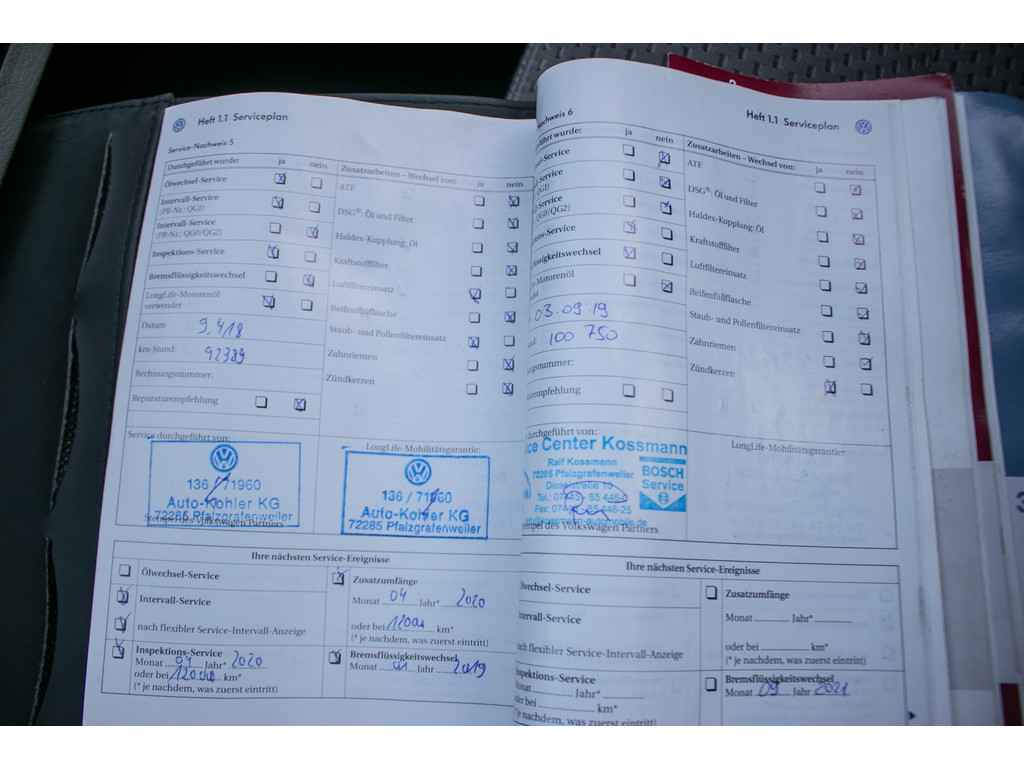 Heft 1.1 Serviceplan
Service-Nachweis 5
Durchgeführt wurde: ja nein
Ölwechsel-Service
Intervall-Service
(PR-Nr.: QG1)
Intervall-Service
(PR-Nr.: QG0/QG2)
Inspektions-Service
Bremsflüssigkeitswechsel
LongLife-Motorenöl
verwendet
Datum 9.4.18
km-Stand: 92389
Rechnungsnummer:
Reparaturempfehlung
Zusatzarbeiten – Wechsel von: ja nein
ATF
DSG®: Öl und Filter
Haldex-Kupplung: Öl
Kraftstofffilter
Luftfiltereinsatz
Reifenfüllflasche
Staub- und Pollenfiltereinsatz
Zahnriemen
Zündkerzen
Service durchgeführt von:
136 / 71960
Auto-Kohler KG
72285 Pfalzgrafenweiler
Stempel des Volkswagen Partners
LongLife-Mobilitätsgarantie:
136 / 71960
Auto-Kohler KG
72285 Pfalzgrafenweiler
Ihre nächsten Service-Ereignisse
Ölwechsel-Service
Intervall-Service
nach flexibler Service-Intervall-Anzeige
Inspektions-Service
Monat 04 Jahr* 2020
oder bei km*
(* je nachdem, was zuerst eintritt)
Zusatzumfänge
Monat 04 Jahr* 2020
oder bei km*
(* je nachdem, was zuerst eintritt)
Bremsflüssigkeitswechsel
Monat Jahr 2019
Heft 1.1 Serviceplan
nachweis 6
führt wurde: ja nein
l-Service
Service
QG1)
Service
QG0/QG2)
ons-Service
ssigkeitswechsel
Motorenöl
03.09.19
100 750
gsnummer:
rempfehlung
Zusatzarbeiten – Wechsel von: ja nein
ATF
DSG®: Öl und Filter
Haldex-Kupplung: Öl
Kraftstofffilter
Luftfiltereinsatz
Reifenfüllflasche
Staub- und Pollenfiltereinsatz
Zahnriemen
Zündkerzen
durchgeführt von:
ice Center Kossmann
Ralf Kossmann
72285 Pfalzgrafenweiler
BOSCH
Service
empel des Volkswagen Partners
LongLife-Mobilitätsgarantie:
Ihre nächsten Service-Ereignisse
lwechsel-Service
tervall-Service
ach flexibler Service-Intervall-Anzeige
nspektions-Service
Monat Jahr*
oder bei km*
* je nachdem, was zuerst eintritt)
Zusatzumfänge
Monat Jahr*
oder bei km*
(* je nachdem, was zuerst eintritt)
Bremsflüssigkeitswechsel
Monat 09 Jahr 2021